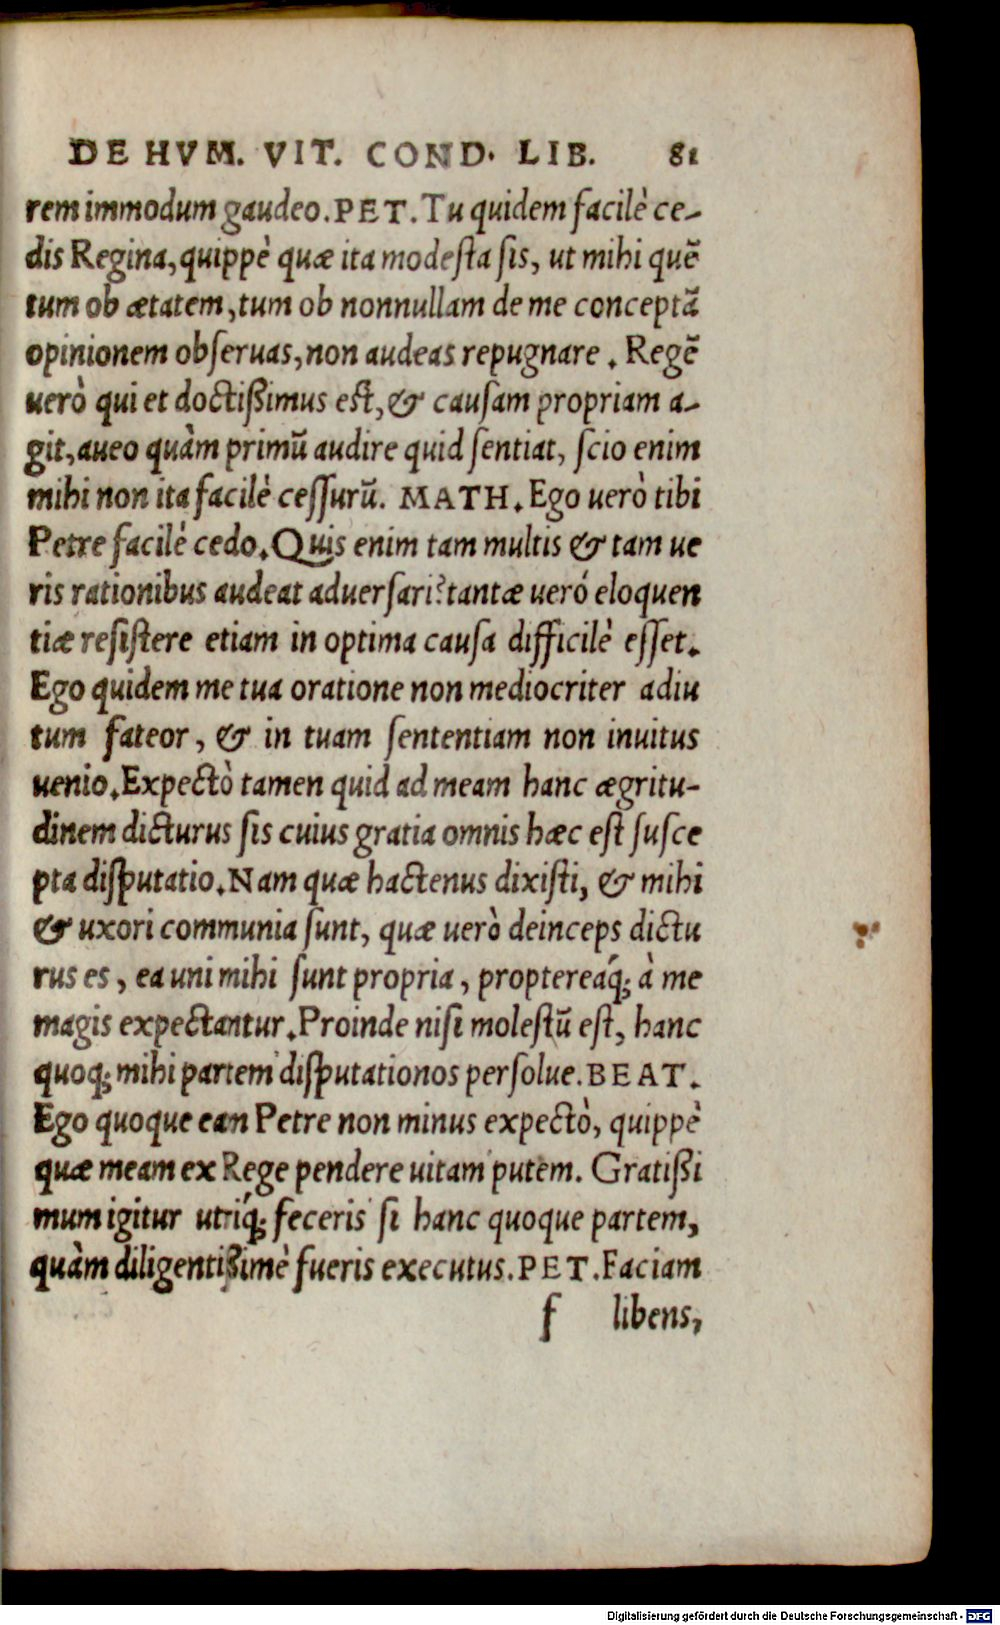 DE HVM. VIT. COND. LIB. 81
rem immodum gaudeo. PET. Tu quidem facilè ce-
dis Regina, quippè quæ ita modesta sis, ut mihi quē
tum ob ætatem, tum ob nonnullam de me conceptā
opinionem obseruas, non audeas repugnare. Regē
uerò qui et doctißimus est, & causam propriam a-
git, aueo quàm primū audire quid sentiat, scio enim
mihi non ita facilè cessurū. MATH. Ego uerò tibi
Petre facilè cedo. Quis enim tam multis & tam ue
ris rationibus audeat aduersari? tantæ ueró eloquen
tiæ resistere etiam in optima causa difficilè esset.
Ego quidem me tua oratione non mediocriter adiu
tum fateor, & in tuam sententiam non inuitus
uenio. Expectò tamen quid ad meam hanc ægritu-
dinem dicturus sis cuius gratia omnis hæc est susce
pta disputatio. Nam quæ hactenus dixisti, & mihi
& uxori communia sunt, quæ uerò deinceps dictu
rus es, ea uni mihi sunt propria, proptereáq; à me
magis expectantur. Proinde nisi molestū est, hanc
quoq; mihi partem disputationos persolue. BEAT.
Ego quoque ean Petre non minus expectò, quippè
quæ meam ex Rege pendere uitam putem. Gratißi
mum igitur utriq́; feceris si hanc quoque partem,
quàm diligentißimè fueris executus. PET. Faciam
f libens,
Digitalisierung gefördert durch die Deutsche Forschungsgemeinschaft - DFG